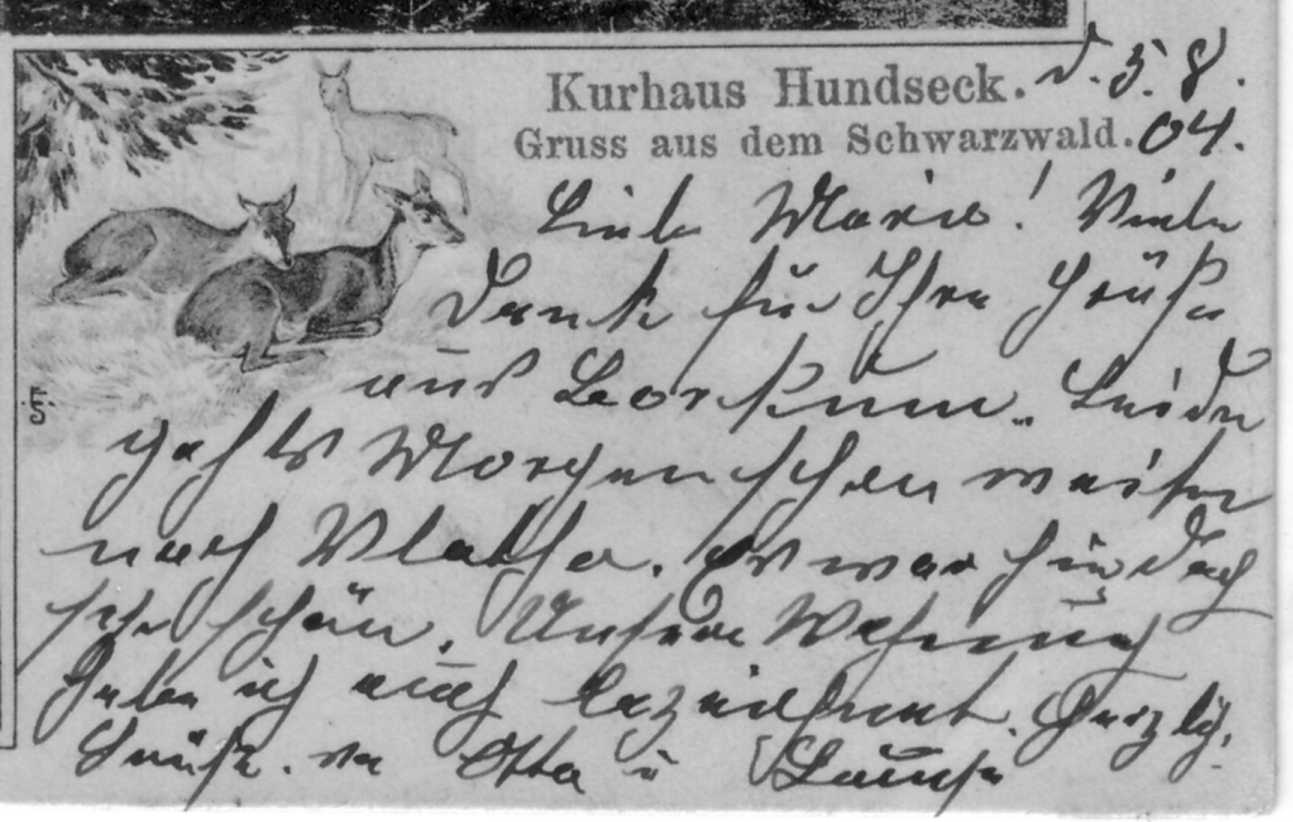 Kurhaus Hundseck. d. 5. 8.
Gruss aus dem Schwarzwald. 04.
Liebe Marie! Vielen
Dank für Ihre Grüße
aus Borkum. Leider
geht's Morgen schon weiter
nach. Es war hier doch
sehr schön. Unsere Wohnung
habe ich auch bezeichnet. Herzlich.
Grüße. von Otto u
F.S.